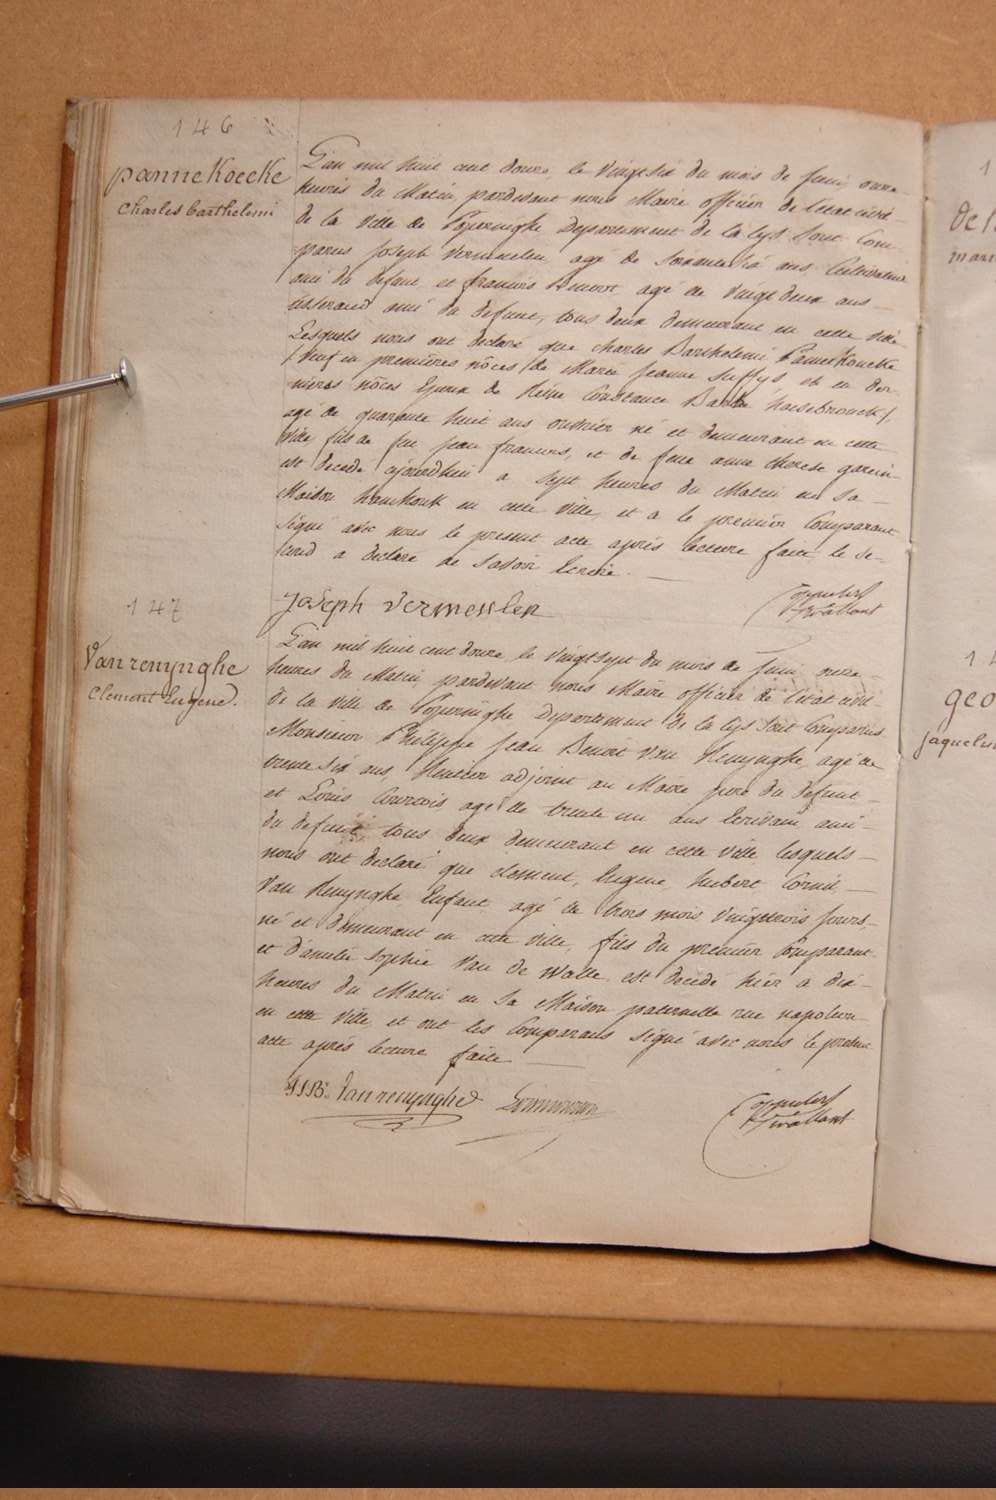 146
pannekoecke
Charles barthelemi
L'an mil huit cent douze, le vingt six du mois de juin, onze
heures du Matin, pardevant nous Maire officier de l'etat civil
de la Ville de Poperinghe Departement de la Lys Sont Com-
parus Joseph Vermeulen, agé de soixante six ans Cultivateur
ami du defunt, et francois Benoit agé de vingt deux ans
tisserand ami du defunt, tous deux demeurant en cette Ville
Lesquels nous ont declaré que charles Barthelemi Pannekoucke
(veuf en premières nôces de Marie jeanne Suffys et en der-
nieres nôces Epoux de Constance Haesebrouck),
agé de quarante huit ans ouvrier né et demeurant en cette
Ville fils de feu jean francois, et de feue anne therese
est decedé ajourdhui a Sept heures du Matin en sa
Maison en cette Ville, et a le premier Comparant
signé avec nous le present acte après lecture faite le se-
cond a declaré de savoir Ecrire.
Joseph Vermeulen
147
Vanrenynghe
Clement Eugene.
L'an mil huit cent douze, le vingt sept du mois de juin, onze
heures du Matin, pardevant nous Maire officier de l'etat civil
de la Ville de Poperinghe Departement de la Lys Sont Comparus
Monsieur Philippe Jean Benoit Van Renynghe, agé de
trente six ans, Rentier adjoint au Maire pere du defunt
et Louis Courtois agé de trente un ans Ecrivain ami
du defunt tous deux demeurant en cette Ville lesquels
nous ont declaré que clement, Eugene, hubert Cornil,
Van Renynghe Enfant, agé de trois mois vingttrois jours,
né et demeurant en cette ville, fils du premier Comparant.
et d'amelie Sophie Van de Walle, est decedé hier a dix
heures du Matin en sa Maison paternelle rue napoleon
en cette Ville et ont les Comparans signé avec nous le present
acte après lecture faite
PJB. Vanrenynghe
1
de l
mari
14
geo
jaquelin